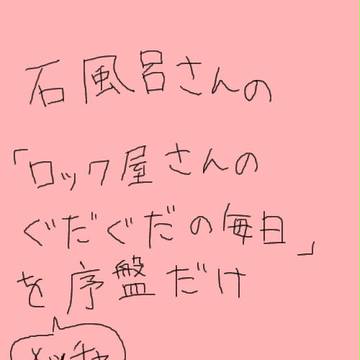 石風呂さんの
「ロック屋さんの
ぐだぐだの毎日」
を序盤だけ
メッチャ